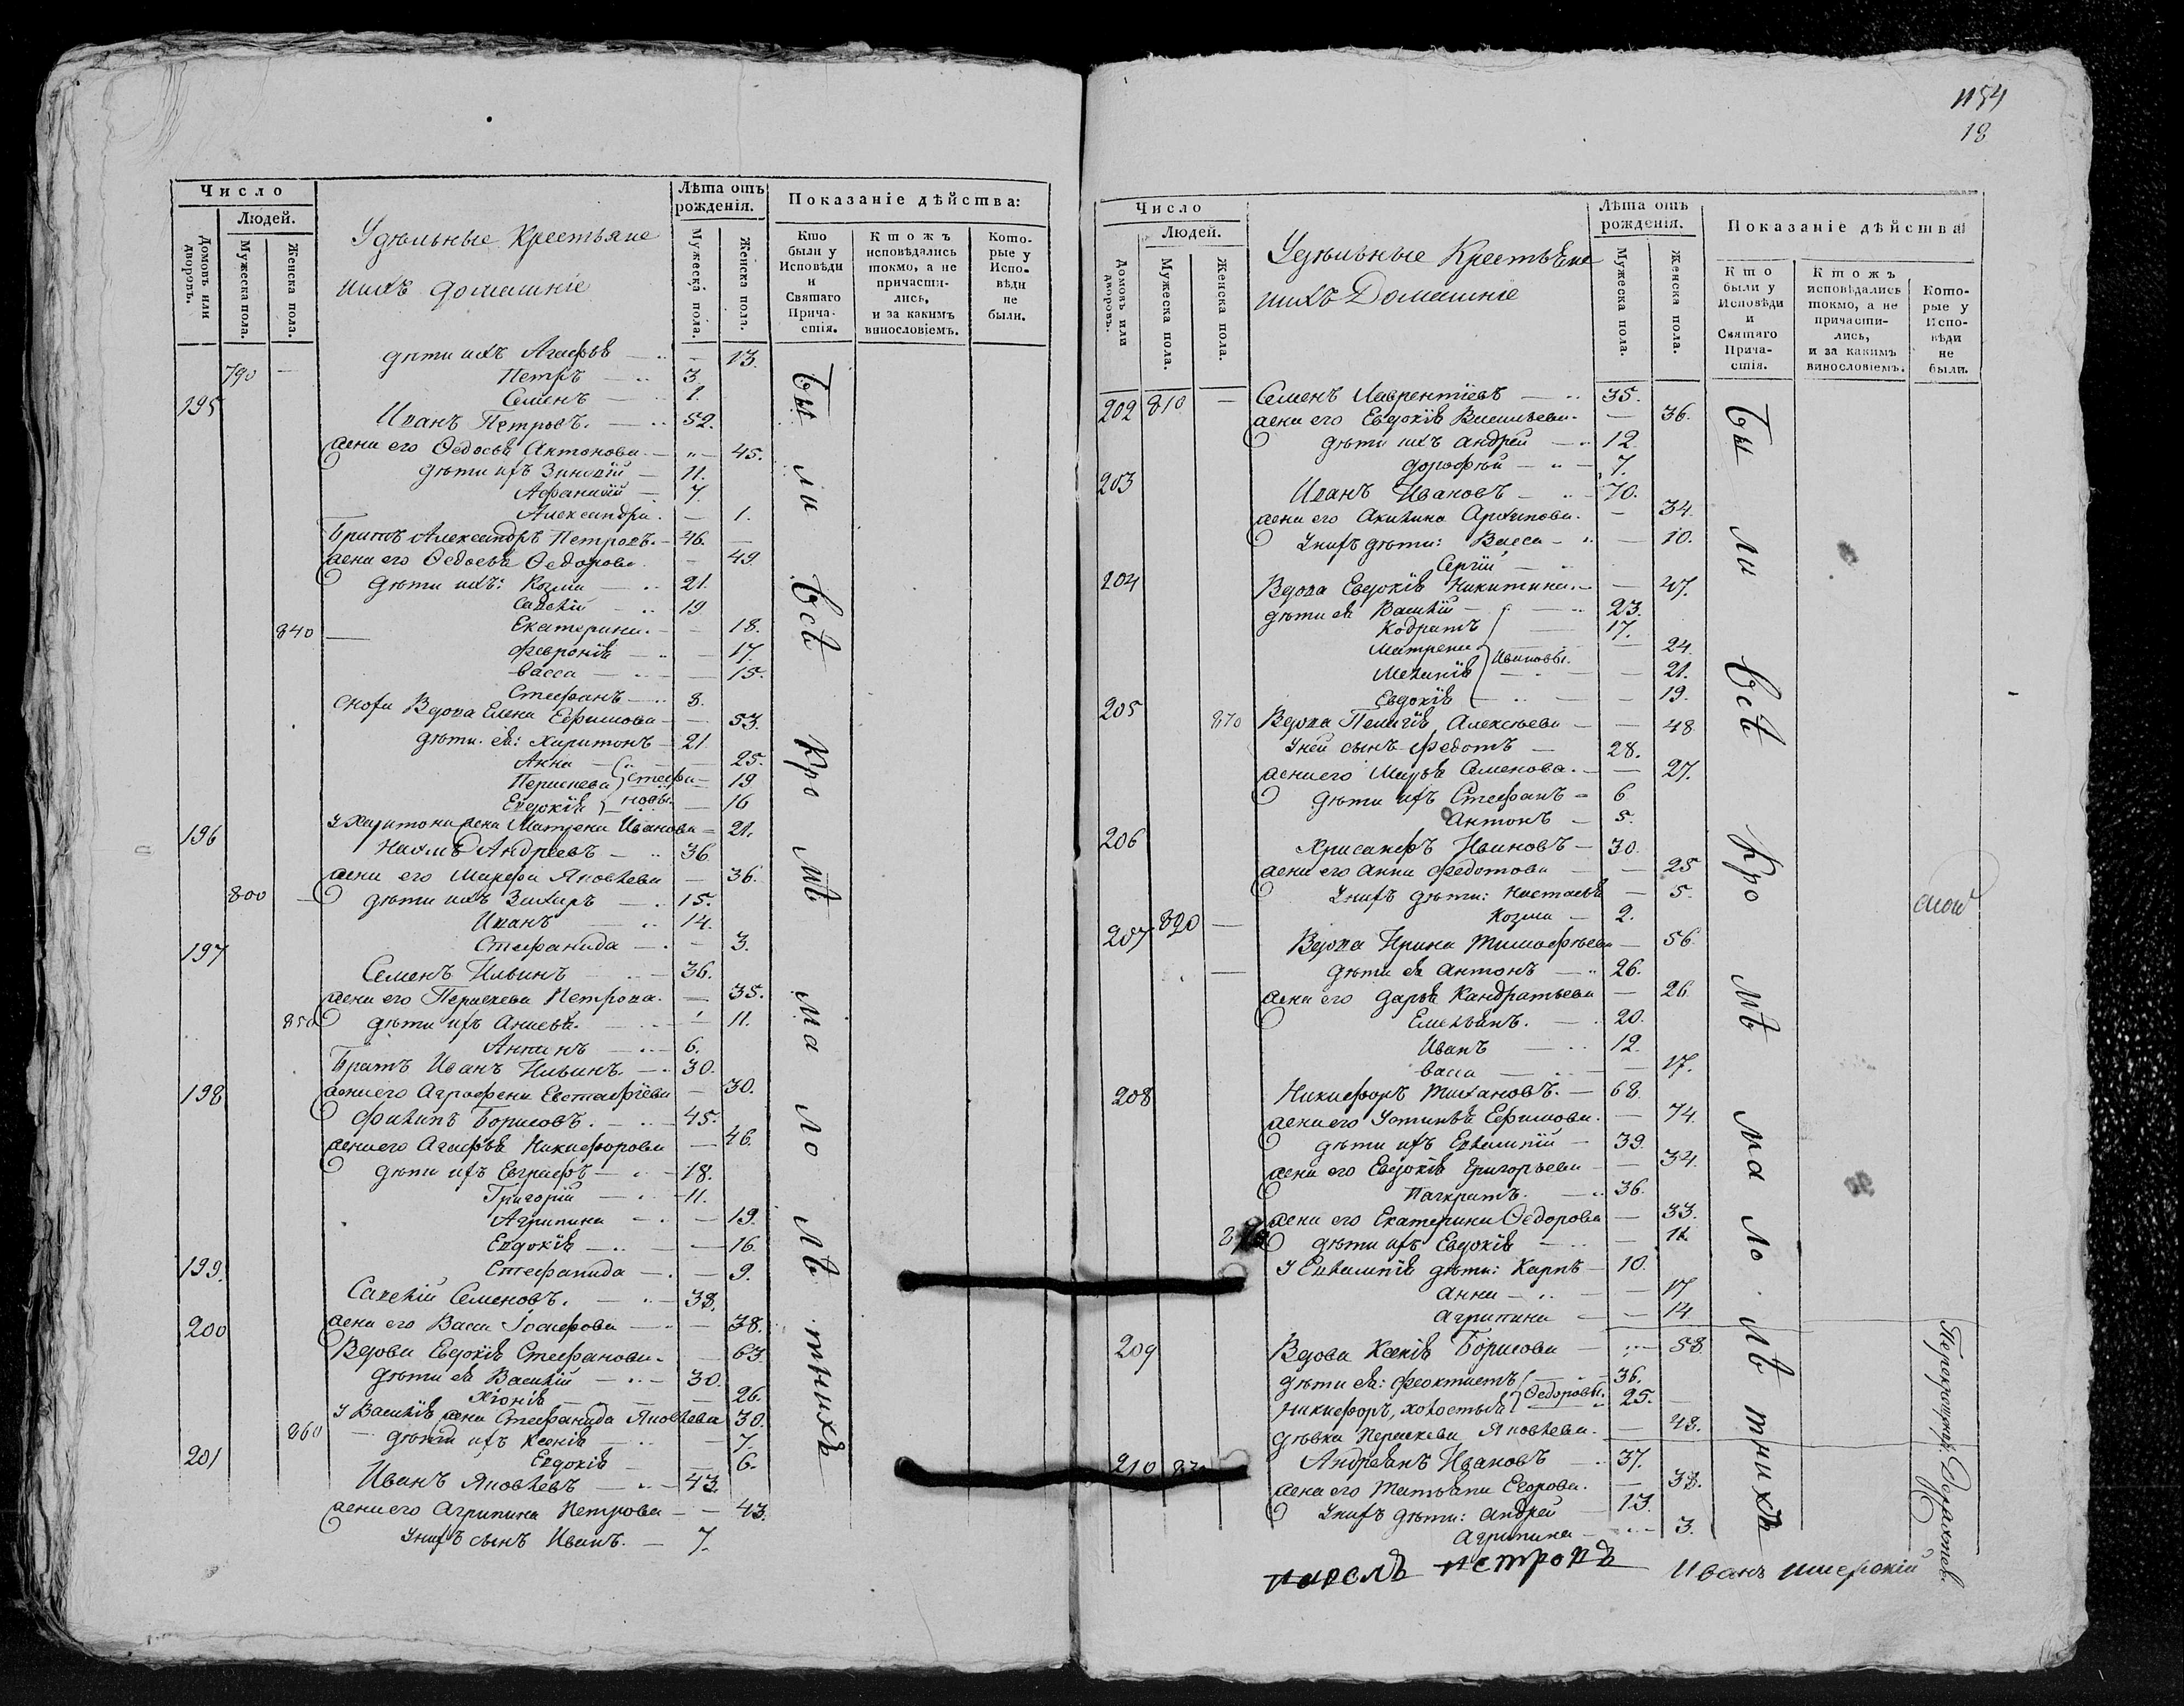 Число
Людей.
Домовъ или дворовъ.
Мужеска пола.
Женска пола.
Удѣльные Крестьяне
ихъ домашніе
Лѣта отъ рожденія.
Мужеска пола.
Женска пола.
Показаніе дѣйства:
Кто были у Исповѣди и Святаго Прича-стія.
Ктожъ исповѣдались токмо, а не причасти-лись, и за какимъ винословіемъ.
Кото-рые у Испо-вѣди не были.
дѣти ихъ Агафья — 13.
790 — Петръ — 3.
Семенъ — 1.
195 Иванъ Петровъ. — 52.
жена его Ѳедосья Антонова — 45.
дѣти ихъ Зиновій — 11.
Афанасій — 7.
Александра. — 1.
Братъ Александръ Петровъ. — 46.
жена его Ѳедосья Ѳедорова — 49.
дѣти ихъ: Козма — 21.
Савелій — 19
840 — Екатерина. — 18.
Февронія — 17.
Васса — 15.
Стефанъ — 8.
Сноха Вдова Елена Ефимова — 53.
дѣти ея: Харитонъ — 21.
Анна — 25.
Парасковa Стефа — 19
Евдокія новы — 16
У Харитона жена Матрена Иванова — 21.
196 Наумъ Андреевъ — 36
жена его Марфа Яковлева — 36.
800 — дѣти ихъ Захаръ — 15.
Иванъ — 14.
Стефанида — 3.
197 Семенъ Ильинъ — 36.
жена его Параскева Петрова. — 35.
850 дѣти ихъ Анисья. — 11.
Антонъ — 6.
Братъ Иванъ Ильинъ. — 30.
жена его Аграфена Евстафіева — 30.
198 Филипъ Борисовъ. — 45.
жена его Агафья Никифорова — 46.
дѣти ихъ Евграфъ — 18.
Григорій — 11.
Агрипина — 19.
Евдокія — 16.
Стефанида — 9.
199. Савелій Семеновъ. — 38.
жена его Васса Іосифова — 38.
200 Вдова Евдокія Стефанова. — 63.
дѣти ея Василій — 30.
Хіонія — 26.
У Василія жена Стефанида Яковлева 30.
860 — дѣти ихъ Ксенія — 7.
Евдокія — 6.
201 Иванъ Яковлевъ — 43.
жена его Агрипина Петрова — 43.
У нихъ сынъ Иванъ. — 7.
Бы ли всѣ кро мѣ ма ло лѣ тныхъ
1154
18
Число
Людей.
Домовъ или дворовъ.
Мужеска пола.
Женска пола.
Удѣльные Крестьяне
ихъ Домашніе
Лѣта отъ рожденія.
Мужеска пола.
Женска пола.
Показаніе дѣйства
Кто были у Исповѣди и Святаго Прича-стія.
Ктожъ исповѣдались токмо, а не причасти-лись, и за какимъ винословіемъ.
Кото-рые у Испо-вѣди не были.
202 810 — Семенъ Лаврентіевъ — 35.
жена его Евдокія Васильева. — 36.
дѣти ихъ Андрей — 12.
Дорофей — 7.
203 Иванъ Ивановъ — 70.
жена его Акилина Архипова. — 34.
У нихъ дѣти: Васса — 10.
Сергій —
204 Вдова Евдокія Никитина. — 47.
дѣти ея Василій — 23.
Кодратъ — 17.
Матрена Ивановы. — 24.
Меланія — 21.
Евдокія — 19.
205 870 Вдова Пелагія Алексѣева — 48
У ней сынъ Федотъ — 28.
жена его Марья Семенова. — 27.
дѣти ихъ Стефанъ — 6
Антонъ — 5.
206 Хрисанфъ Ивановъ — 30.
жена его Анна Федотова — 25
У нихъ дѣти: Настасья — 5.
Козма — 2.
207 820 — Вдова Ирина Тимофѣева — 56.
дѣти ея Антонъ — 26.
жена его Дарья Кандратьева — 26.
Емельянъ. — 20.
Иванъ — 12.
Васса — 17.
208 Никифоръ — 68.
жена его Устинья Ефимова. — 74.
дѣти ихъ Евлампій — 39.
жена его Евдокія Григорьева — 34.
Панкратъ. — 36.
жена его Екатерина Ѳедорова — 33.
дѣти ихъ Евдокія — 11.
У Евлампія дѣти: Карпъ — 10.
Анна — 17
Агрипина — 14
209 Вдова Ксенія Борисова — 58.
дѣти ея: Феоктистъ — 36.
Никифоръ, холостыя Ѳедоровы. — 25.
дѣвка Параскева Яковлева. — 43.
210 Андреянъ Ивановъ — 37.
жена его Татьяна Егорова. — 38.
У нихъ дѣти: Андрей — 13.
Агрипина — 3.
Бы ли всѣ кро мѣ ма ло лѣ тнихъ
Петровъ Иванъ